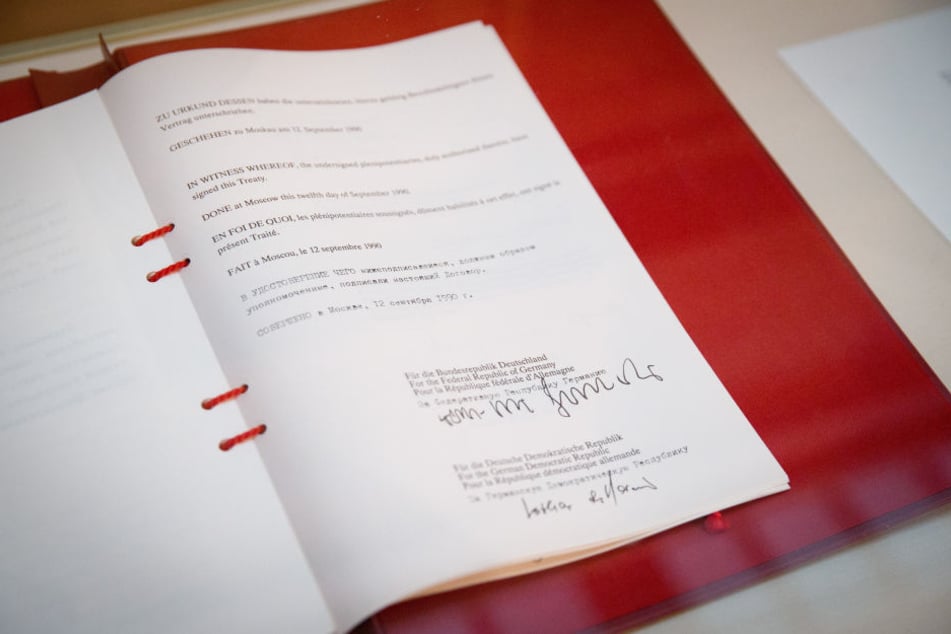 ZU URKUND DESSEN haben die unterzeichneten, hierzu gehörig Bevollmächtigten diesen
Vertrag unterschrieben.
GESCHEHEN zu Moskau am 12. September 1990
IN WITNESS WHEREOF, the undersigned plenipotentiaries, duly authorized thereto, have
signed this Treaty.
DONE at Moscow this twelfth day of September 1990.
EN FOI DE QUOI, les plénipotentiaires soussignés, dûment habilités à cet effet, ont signé le
présent Traité.
FAIT à Moscou, le 12 septembre 1990
В УДОСТОВЕРЕНИЕ ЧЕГО нижеподписавшиеся, должным образом
уполномоченные, подписали настоящий Договор.
СОВЕРШЕНО в Москве, 12 сентября 1990 г.
Für die Bundesrepublik Deutschland
For the Federal Republic of Germany
Pour la République fédérale d'Allemagne
За Федеративную Республику Германию
Für die Deutsche Demokratische Republik
For the German Democratic Republic
Pour la République démocratique allemande
За Германскую Демократическую Республику